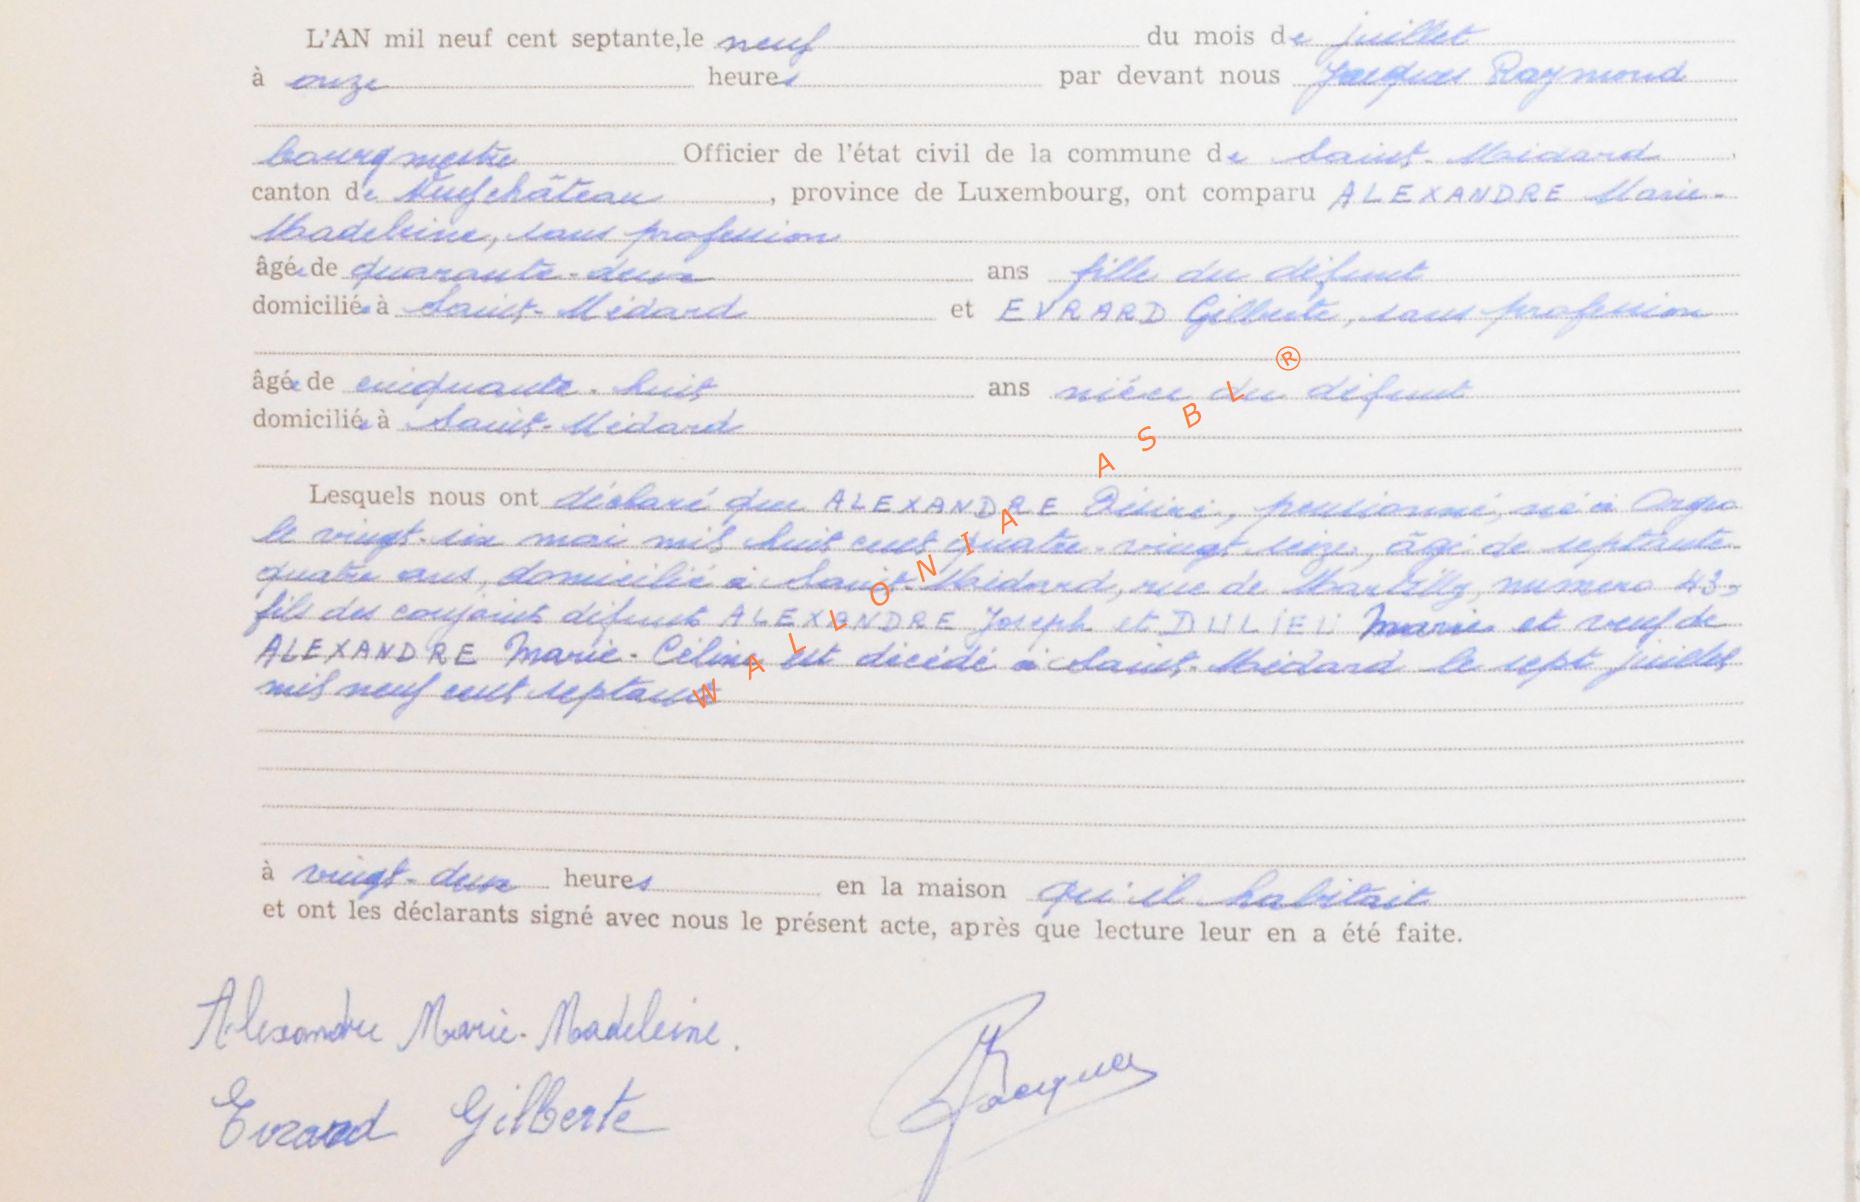 L'AN mil neuf cent septante,le neuf du mois de juillet
à onze heures par devant nous Jacques Raymond
bourgmestre Officier de l'état civil de la commune de Saint-Médard,
canton de Neufchâteau, province de Luxembourg, ont comparu ALEXANDRE Marie-
Madeleine, sans profession
âgée de quarante-deux ans fille du défunt
domiciliée à Saint-Médard et EVRARD Gilberte, sans profession
âgée de cinquante-huit ans nièce du défunt
domiciliée à Saint-Médard
Lesquels nous ont déclaré que ALEXANDRE Désiré, pensionné, né à Orgeo
le vingt-six mai mil huit cent quatre-vingt seize, âgé de septante-
quatre ans, domicilié à Saint-Médard, rue de Martilly, numero 43,
fils des conjoints défunts ALEXANDRE Joseph et DULIEU Marie et veuf de
ALEXANDRE Marie-Céline est décédé à Saint-Médard le sept juillet
mil neuf cent septante
à vingt-deux heures en la maison qu'il habitait
et ont les déclarants signé avec nous le présent acte, après que lecture leur en a été faite.
Alexandre Marie-Madeleine.
Evrard Gilberte
Jacques
WALLONIA ASBL ®